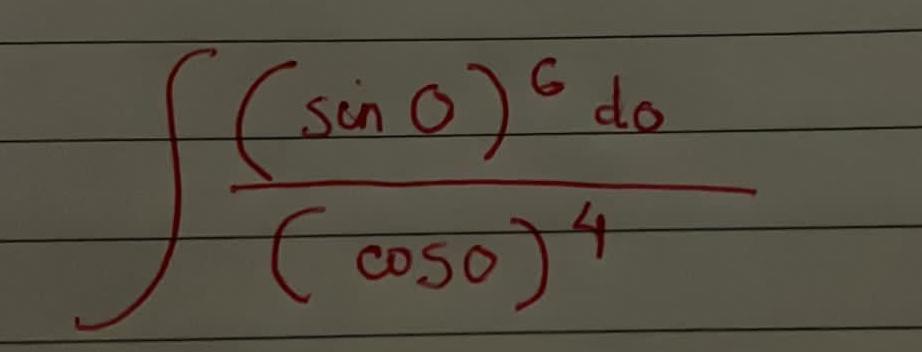 ∫ (sin θ)^6 dθ / (cos θ)^4